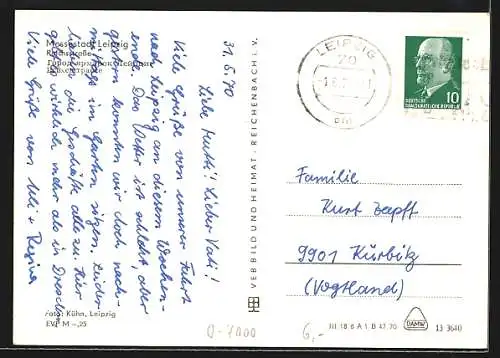 Messestadt Leipzig
Reichsstraße
31.5.70
Liebe Mutti! Lieber Vati!
Viele Grüße von unserer Fahrt
nach Leipzig an diesem Wochen-
ende. Das Wetter ist schlecht, aber
gestern konnten wir doch nach-
mittags im Garten sitzen. Leider
haben die Geschäfte alle zu. Hier
gibt's wirklich mehr als in Dresden
Viele Grüße von Uli + Regina
Foto: Kühn, Leipzig
EVP M -,25
VEB BILD UND HEIMAT · REICHENBACH i. V.
LEIPZIG
70
10
DEUTSCHE
DEMOKRATISCHE REPUBLIK
Familie
Kurt Zapff
9901 Kürbitz
(Vogtland)
III 18 6 A 1 B 47 70
DAMW
13 3640
0-7000
6,-